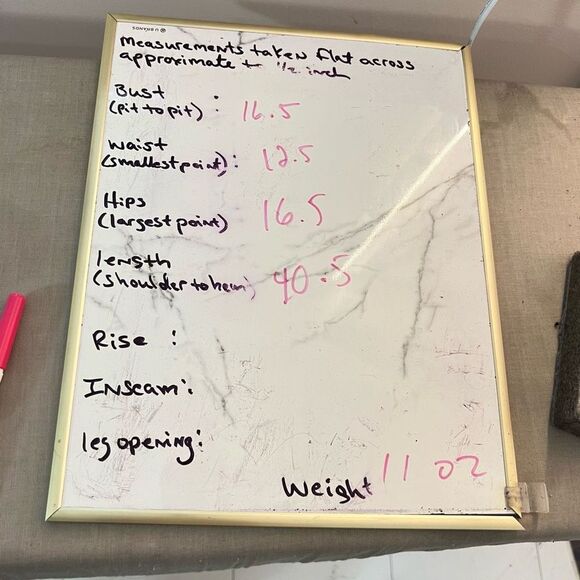 U BRANDS
Measurements taken flat across
approximate to 1/2 inch
Bust
(pit to pit) : 16.5
waist
(smallest point): 12.5
Hips
(largest point) 16.5
length
(shoulder to hem) 40.5
Rise :
Inseam:
leg opening:
Weight 11 oz